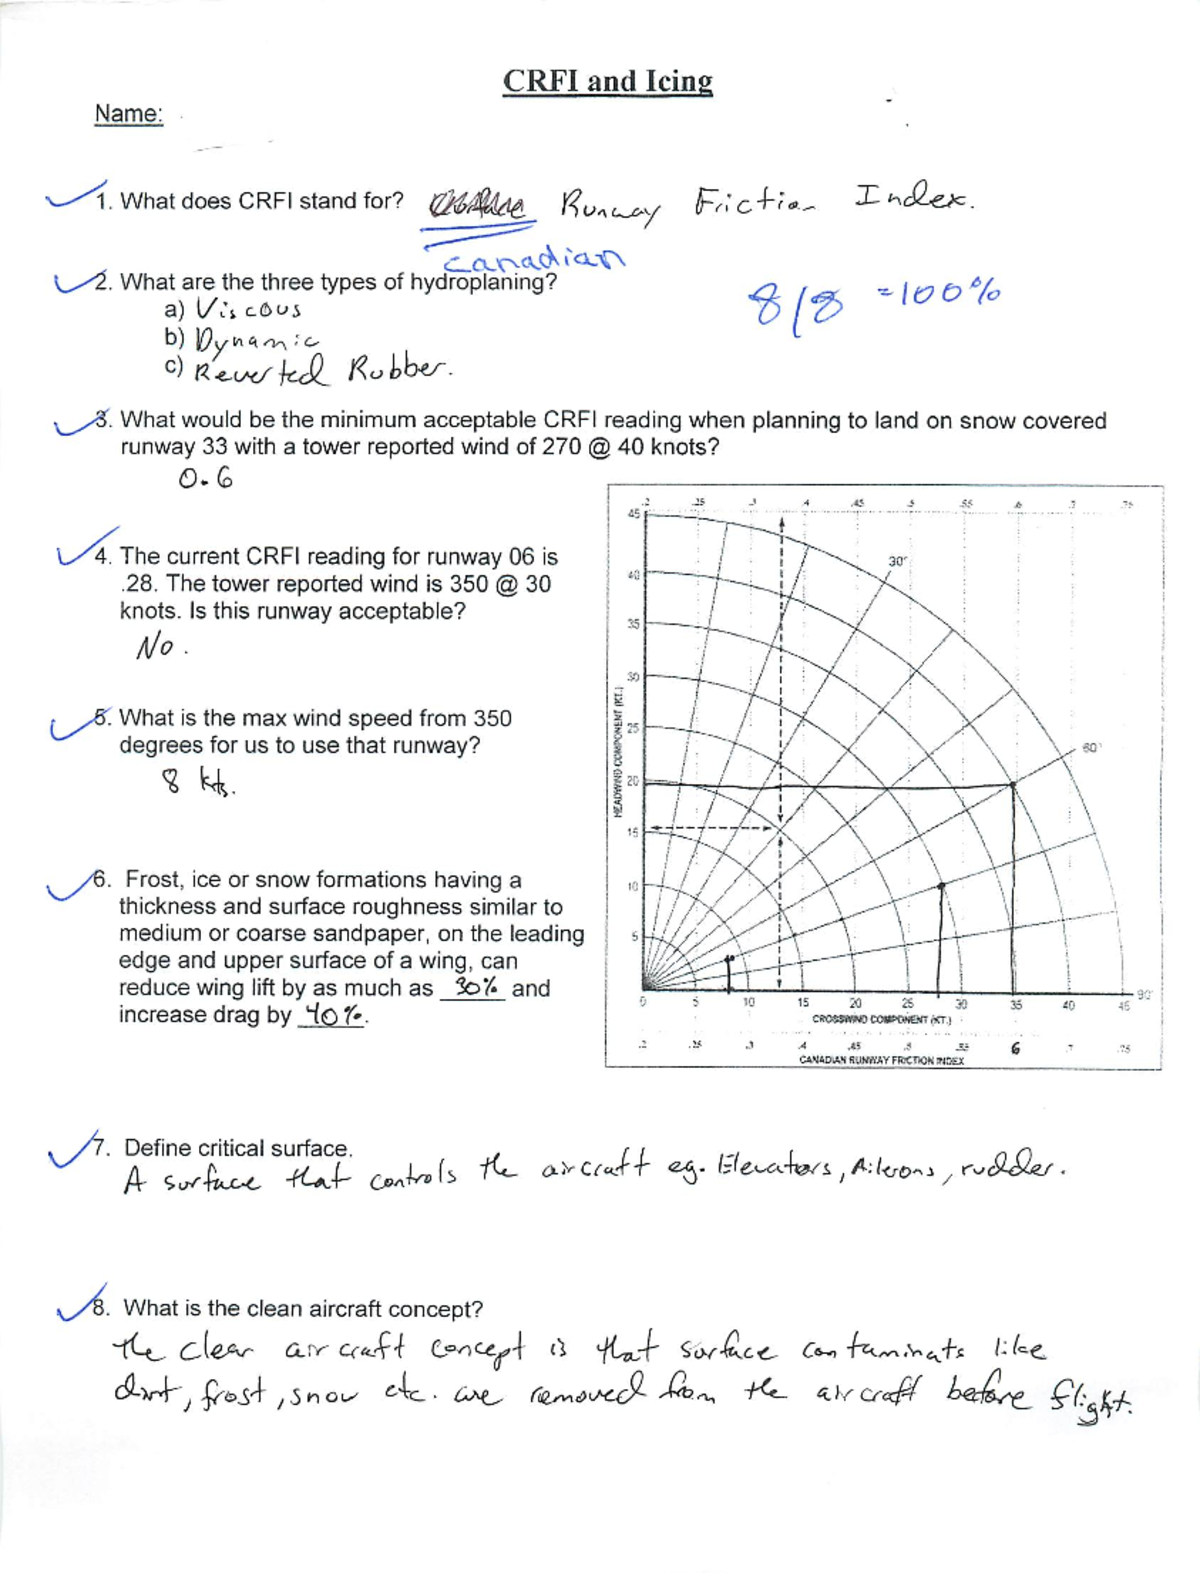 CRFI and Icing
Name:
1. What does CRFI stand for? Runway Friction Index.
canadian
2. What are the three types of hydroplaning?
8/8 =100%
a) Viscous
b) Dynamic
c) Reverted Rubber.
3. What would be the minimum acceptable CRFI reading when planning to land on snow covered
runway 33 with a tower reported wind of 270 @ 40 knots?
0.6
4. The current CRFI reading for runway 06 is
.28. The tower reported wind is 350 @ 30
knots. Is this runway acceptable?
No.
5. What is the max wind speed from 350
degrees for us to use that runway?
8 kts.
6. Frost, ice or snow formations having a
thickness and surface roughness similar to
medium or coarse sandpaper, on the leading
edge and upper surface of a wing, can
reduce wing lift by as much as 30% and
increase drag by 40%.
.2 .25 .3 .4 .45 .5 .55 .6 .7 .75
45
30°
40
35
30
60°
25
20
15
10
5
HEADWIND COMPONENT (KT.)
90°
0 5 10 15 20 25 30 35 40 45
CROSSWIND COMPONENT (KT.)
.2 .25 .3 .4 .45 .5 .55 6 .7 .75
CANADIAN RUNWAY FRICTION INDEX
7. Define critical surface.
A surface that controls the aircraft eg. Elevators, Ailerons, rudder.
8. What is the clean aircraft concept?
the clean aircraft concept is that surface contaminats like
dirt, frost, snow etc. are removed from the aircraft before flight.